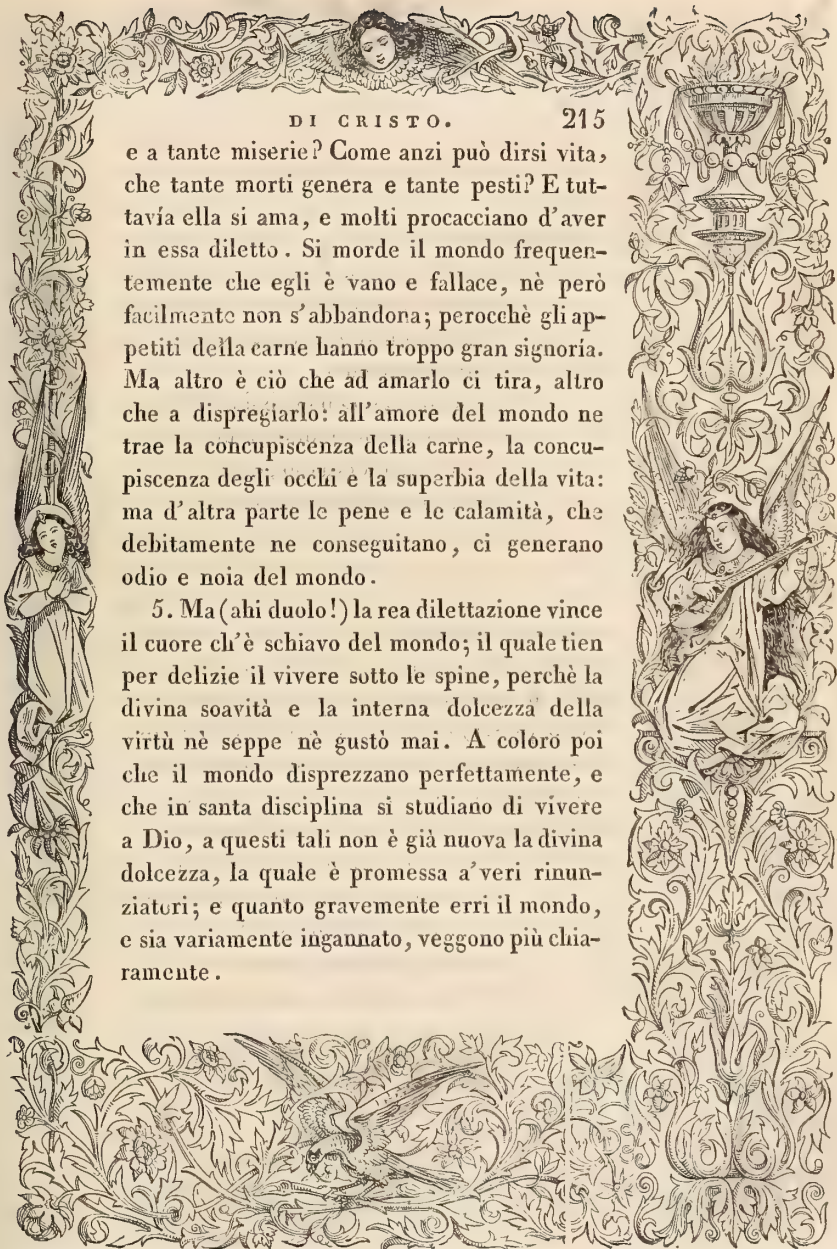 DI CRISTO. 215
e a tante miserie? Come anzi può dirsi vita,
che tante morti genera e tante pesti? E tut-
tavía ella si ama, e molti procacciano d'aver
in essa diletto. Si morde il mondo frequen-
temente che egli è vano e fallace, nè però
facilmente non s'abbandona; perocchè gli ap-
petiti della carne hanno troppo gran signoría.
Ma altro è ciò che ad amarlo ci tira, altro
che a dispregiarlo: all'amore del mondo ne
trae la concupiscenza della carne, la concu-
piscenza degli occhi e la superbia della vita:
ma d'altra parte le pene e le calamità, che
debitamente ne conseguitano, ci generano
odio e noia del mondo.
5. Ma (ahi duolo!) la rea dilettazione vince
il cuore ch'è schiavo del mondo; il quale tien
per delizie il vivere sotto le spine, perchè la
divina soavità e la interna dolcezza della
virtù nè seppe nè gustò mai. A coloro poi
che il mondo disprezzano perfettamente, e
che in santa disciplina si studiano di vivere
a Dio, a questi tali non è già nuova la divina
dolcezza, la quale è promessa a'veri rinun-
ziatori; e quanto gravemente erri il mondo,
e sia variamente ingannato, veggono più chia-
ramente.